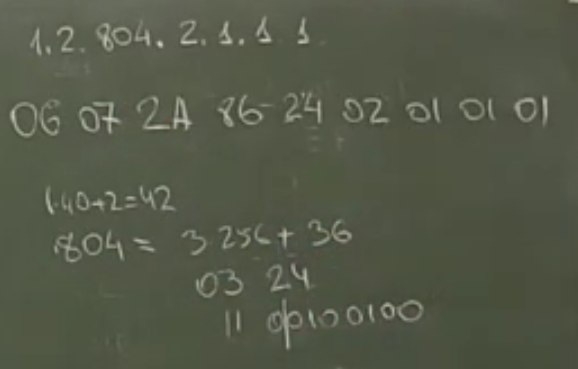 1.2.804.2.1.1.1
06 07 2A 86 24 02 01 01 01
1·40+2=42
804 = 3·256 + 36
03 24
11 00100100